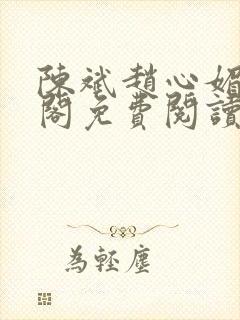 陳斌趙心媚
閣免費閱讀
為輕塵